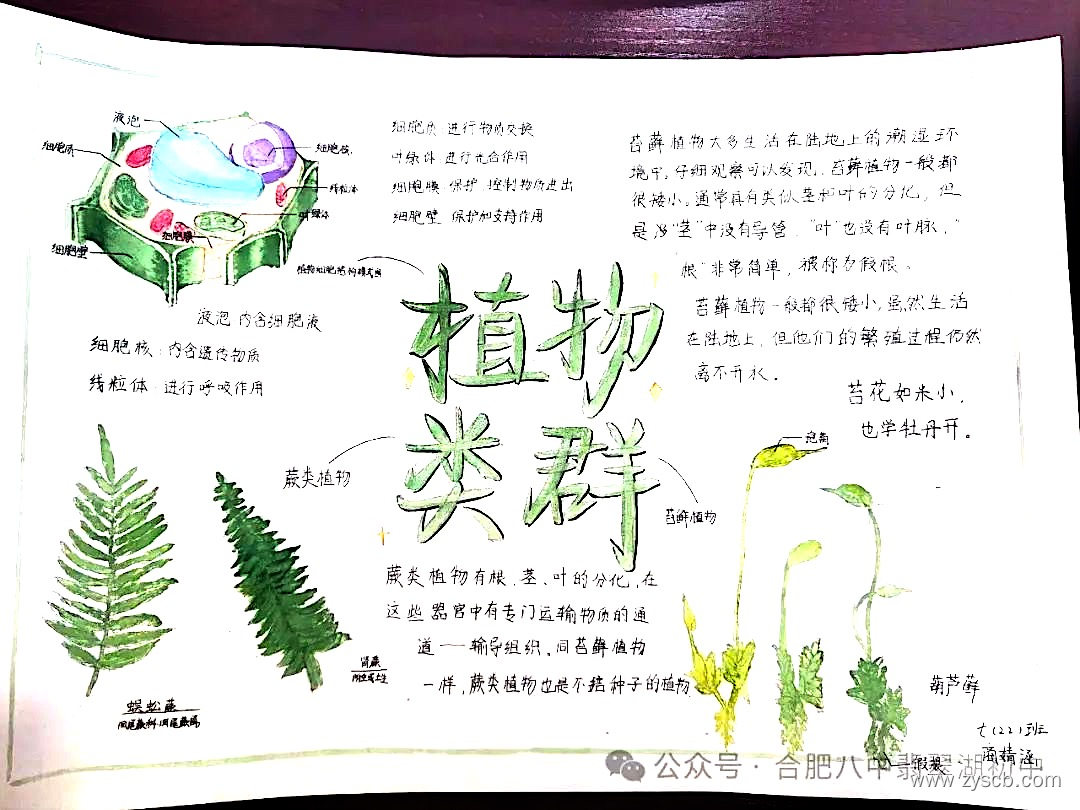 液泡
细胞质
细胞核
线粒体
叶绿体
细胞膜
细胞壁
植物细胞结构模式图
液泡 内含细胞液
细胞核：内含遗传物质
线粒体：进行呼吸作用
细胞质 进行物质交换
叶绿体 进行光合作用
细胞膜 保护，控制物质进出
细胞壁 保护和支持作用
植物
类群
苔藓植物大多生活在陆地上的潮湿环
境中，仔细观察可以发现，苔藓植物一般都
很矮小，通常具有类似茎和叶的分化，但
是没"茎"中没有导管，"叶"也没有叶脉，"
根"非常简单，被称为假根。
苔藓植物一般都很矮小，虽然生活
在陆地上，但他们的繁殖过程仍然
离不开水。
苔花如米小，
也学牡丹开。
蕨类植物
苔藓植物
孢蒴
蜈蚣蕨
肾蕨
蕨类植物有根、茎、叶的分化，在
这些器官中有专门运输物质的通
道——输导组织，同苔藓植物
一样，蕨类植物也是不结种子的植物
葫芦藓
假根
七(22)班
公众号·合肥八中翡翠湖初中
www.zyscb.com